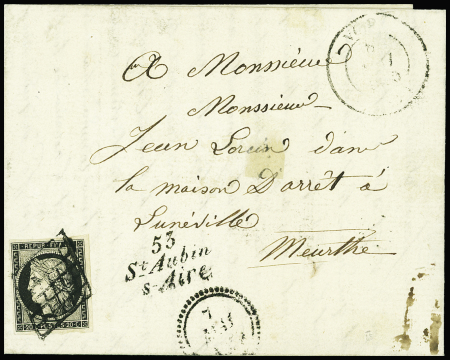 A Monsieur
Monssieur
Jean Lorein dans
la maison D'arrêt à
Lunéville
Meurthe
53
St Aubin
s-Aire
REPUB. FRANC.
20 20
7
MAI